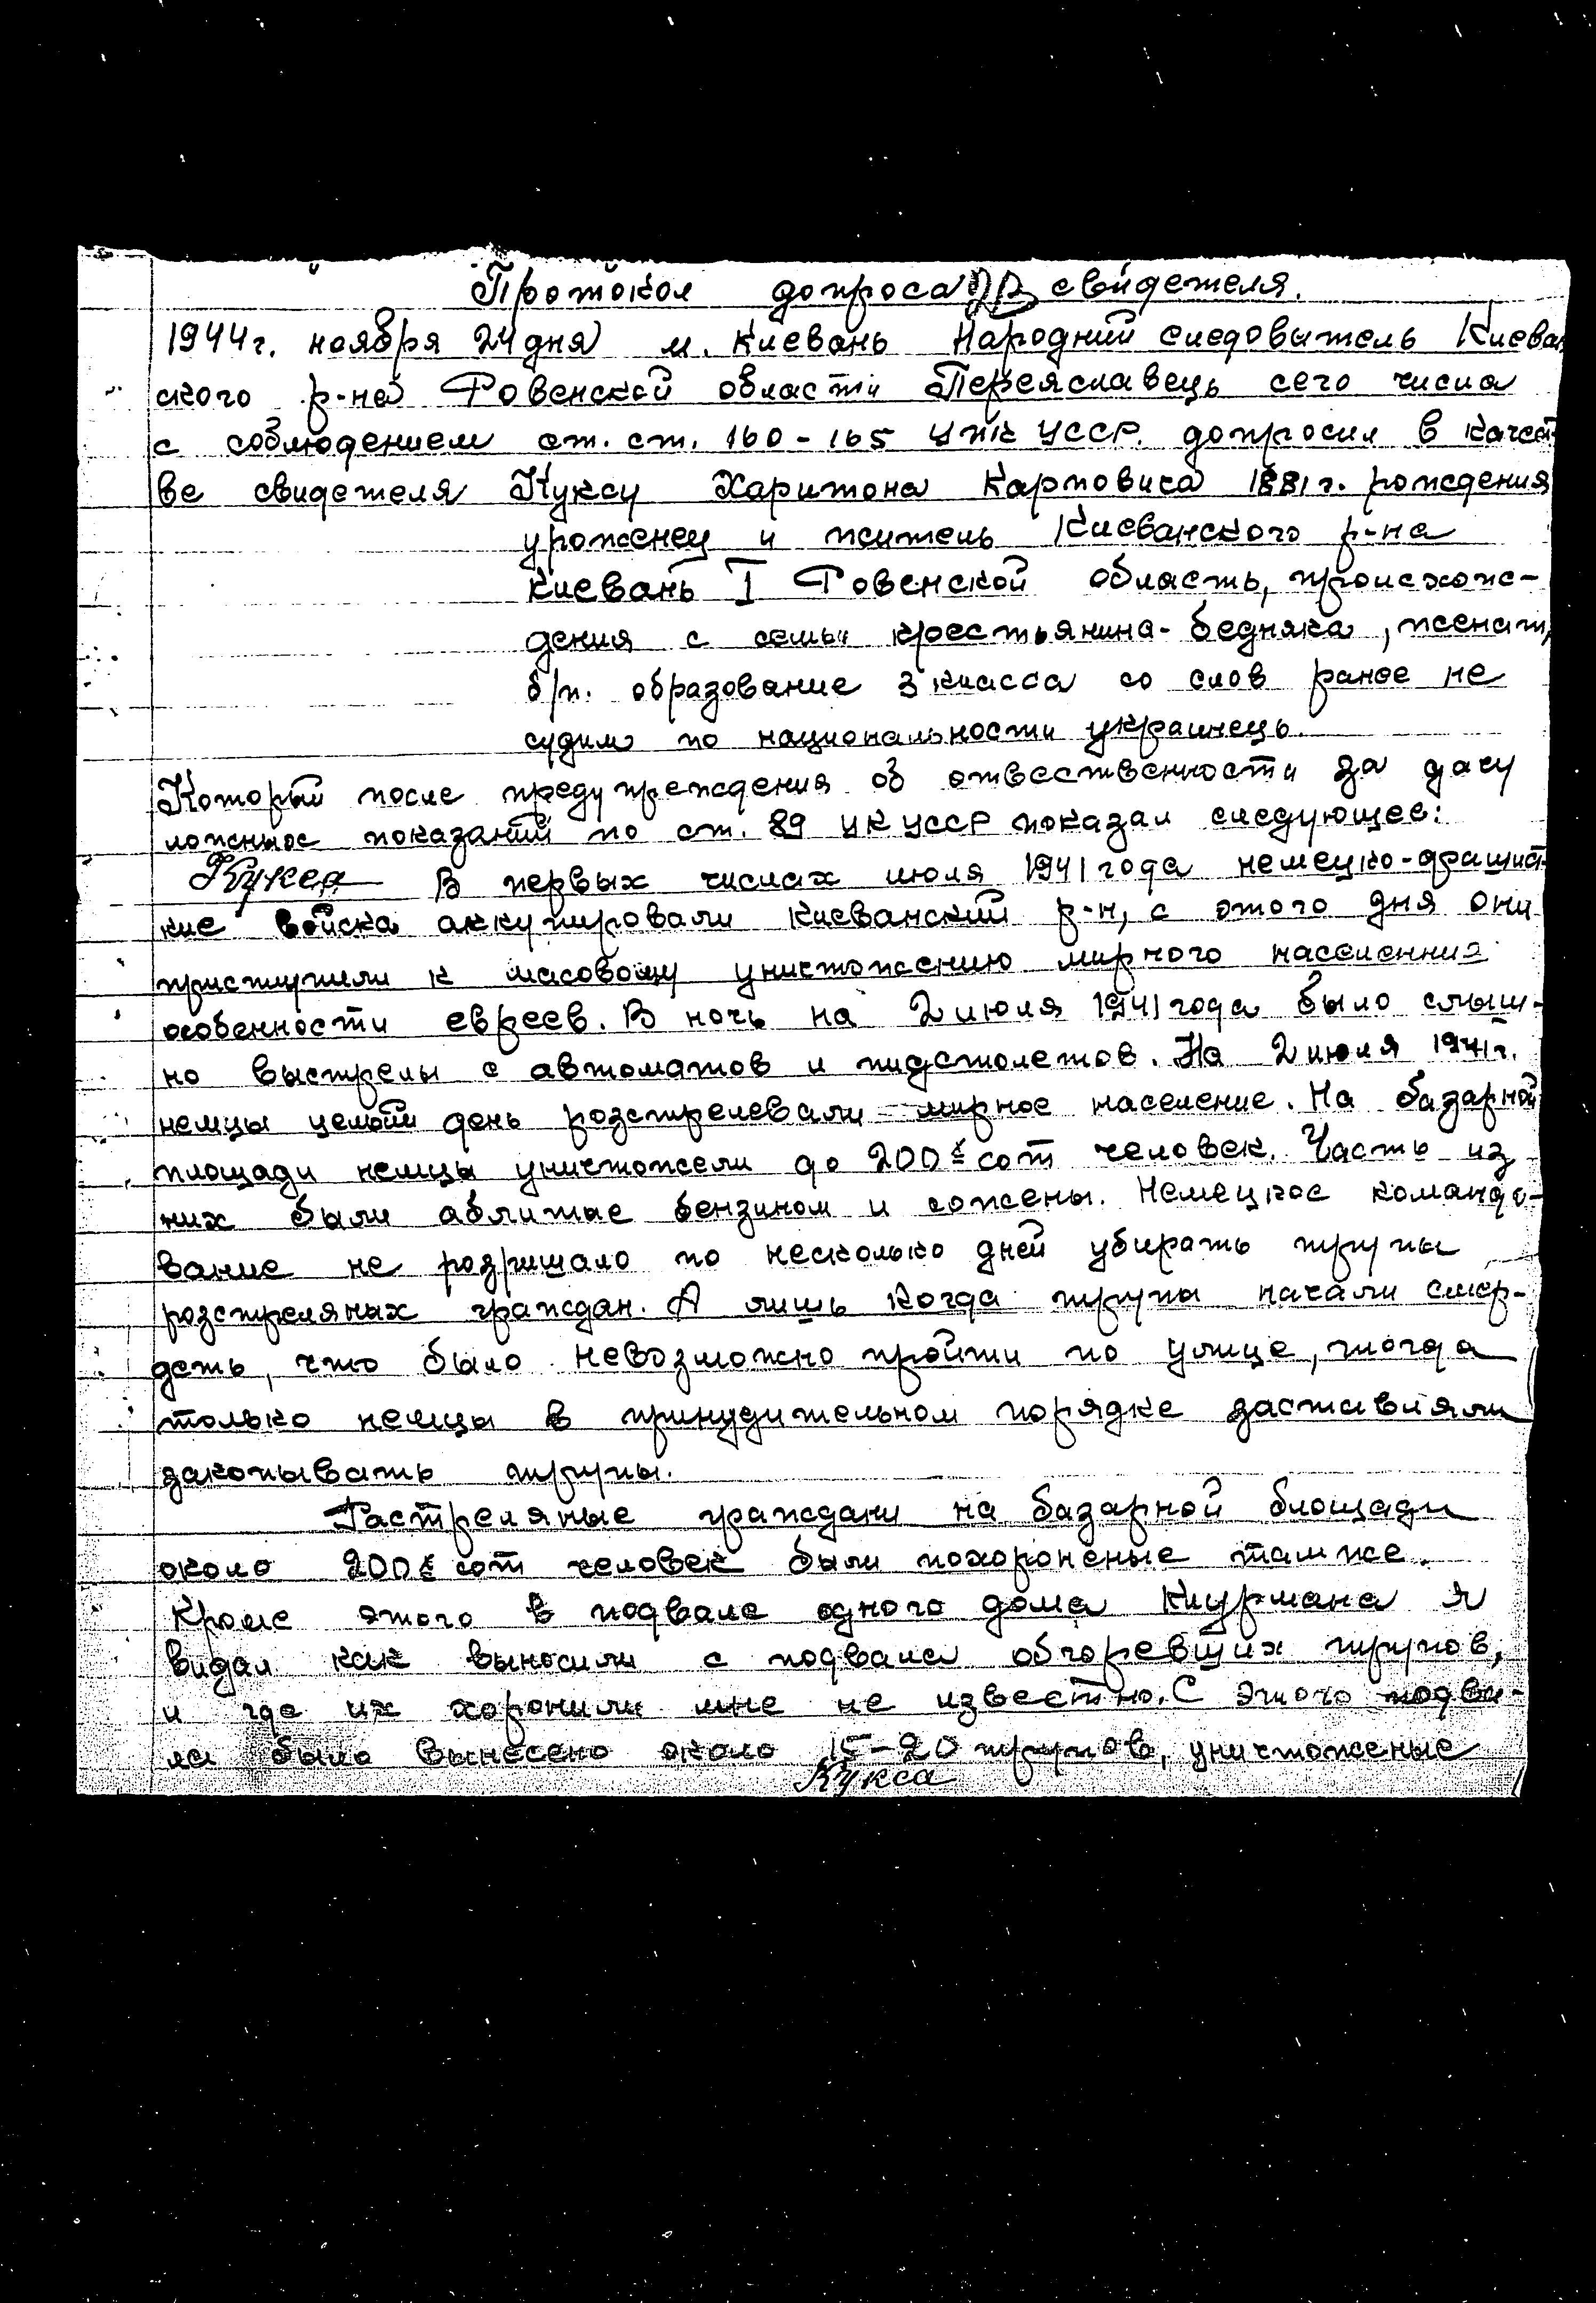 Протокол допроса свидетеля.
1944г. ноября 24 дня м. Клевань Народний следовытель Клеван
ского р-на Ровенской области Переяславець сего числа
с соблюдением ст. ст. 160-165 УПК УССР. допросил в качест
ве свидетеля Куксу Харитона Карповича 1881 г. рождения
уроженец и житель Клеванского р-на
Клевань I Ровенской область, происхож-
дения с семьи крестьянина-бедняка, женат,
б/п. образование 3 класса со слов ранее не
судим по национальности украинець.
Который после предупреждения об отвественности за дачу
ложные показаний по ст. 89 УК УССР показал следующее:
Кукса В первых числах июля 1941 года немецко-фашист-
кие войска аккупировали Клеванский р-н, с этого дня они
приступили к масовому уничтожению мирного населения
особенности евреев. В ночь на 2 июля 1941 года было слыш-
но выстрелы с автоматов и пистолетов. На 2 июля 1941г.
немцы целый день розстрелевали мирное население. На базарной
площади немцы уничтожели до 200 сот человек. Часть из
них были аблитые бензином и сожены. Немецкое командо-
вание не розришало по несколько дней убирать трупы
розстреляных граждан. А лишь когда трупы начали смер-
деть, что было невозможно пройти по улице, тогда
только немцы в принудительном порядке заставляли
закопывать трупы.
Растреляные граждани на базарной блощади
около 200 сот человек были похороненые там же.
Кроме этого в подвале одного дома Клурмана я
видал как выносили с подвала обгоревших трупов,
и где их хоронили мне не известно. С этого подва-
ла было вынесено около 15-20 трупов, уничтоженые
Кукса